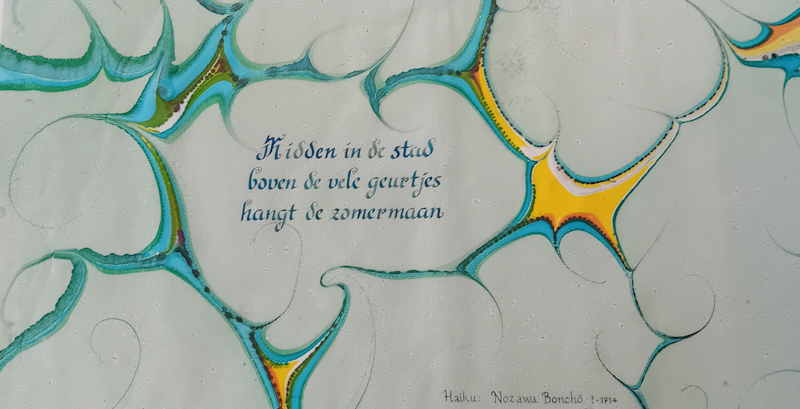 Midden in de stad
boven de vele geurtjes
hangt de zomermaan
Haiku: Nozawa Bonchō ?-1714